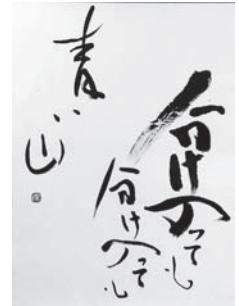 分け入っても
分け入っても
青い山